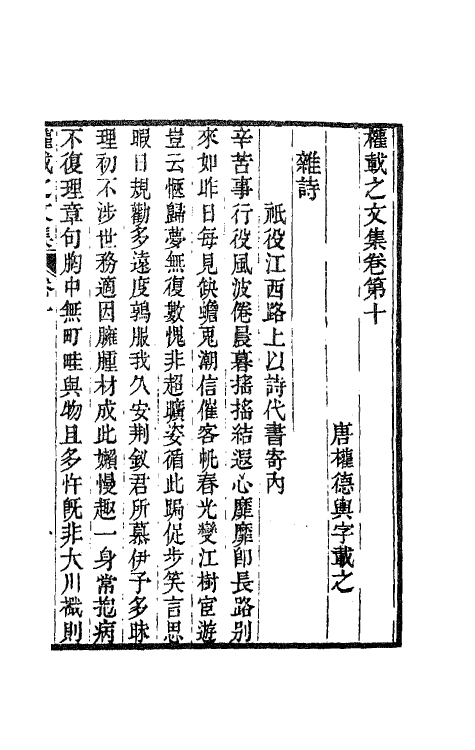 權載之文集卷第十
唐權德輿字載之
雜詩
祇役江西路上以詩代書寄內
辛苦事行役風波倦晨暮搖搖結遐心靡靡卽長路別
來如昨日每見缺蟾兎潮信催客帆春光變江樹宦遊
豈云愜歸夢無復數愧非超曠姿循此跼促步笑言思
暇日規勸多遠度鶉服我久安荆釵君所慕伊予多昧
理初不涉世務適因臃腫材成此懶慢趣一身常抱病
不復理章句胸中無町畦與物且多忤旣非大川檝則
權載之文集